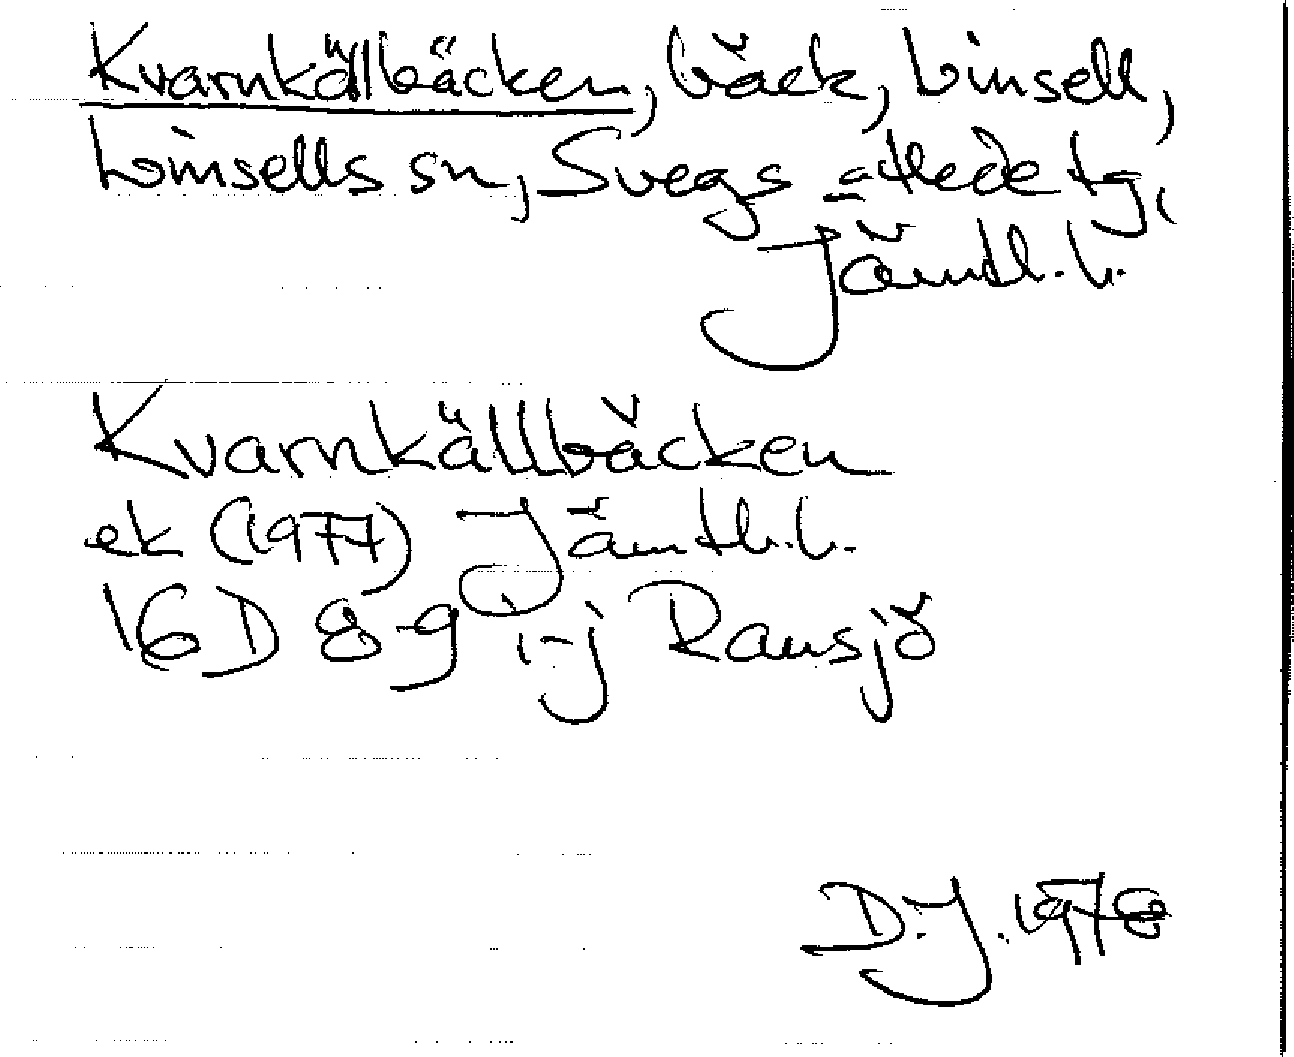 Kvarnkällbäcken, bäck, Linsell,
Linsells sn, Svegs -Hede tg,
Jämtl.l.
Kvarnkällbäcken
ek (1977) Jämtl.l.
16D 8-9 i-j Ransjö
D.J. 1978